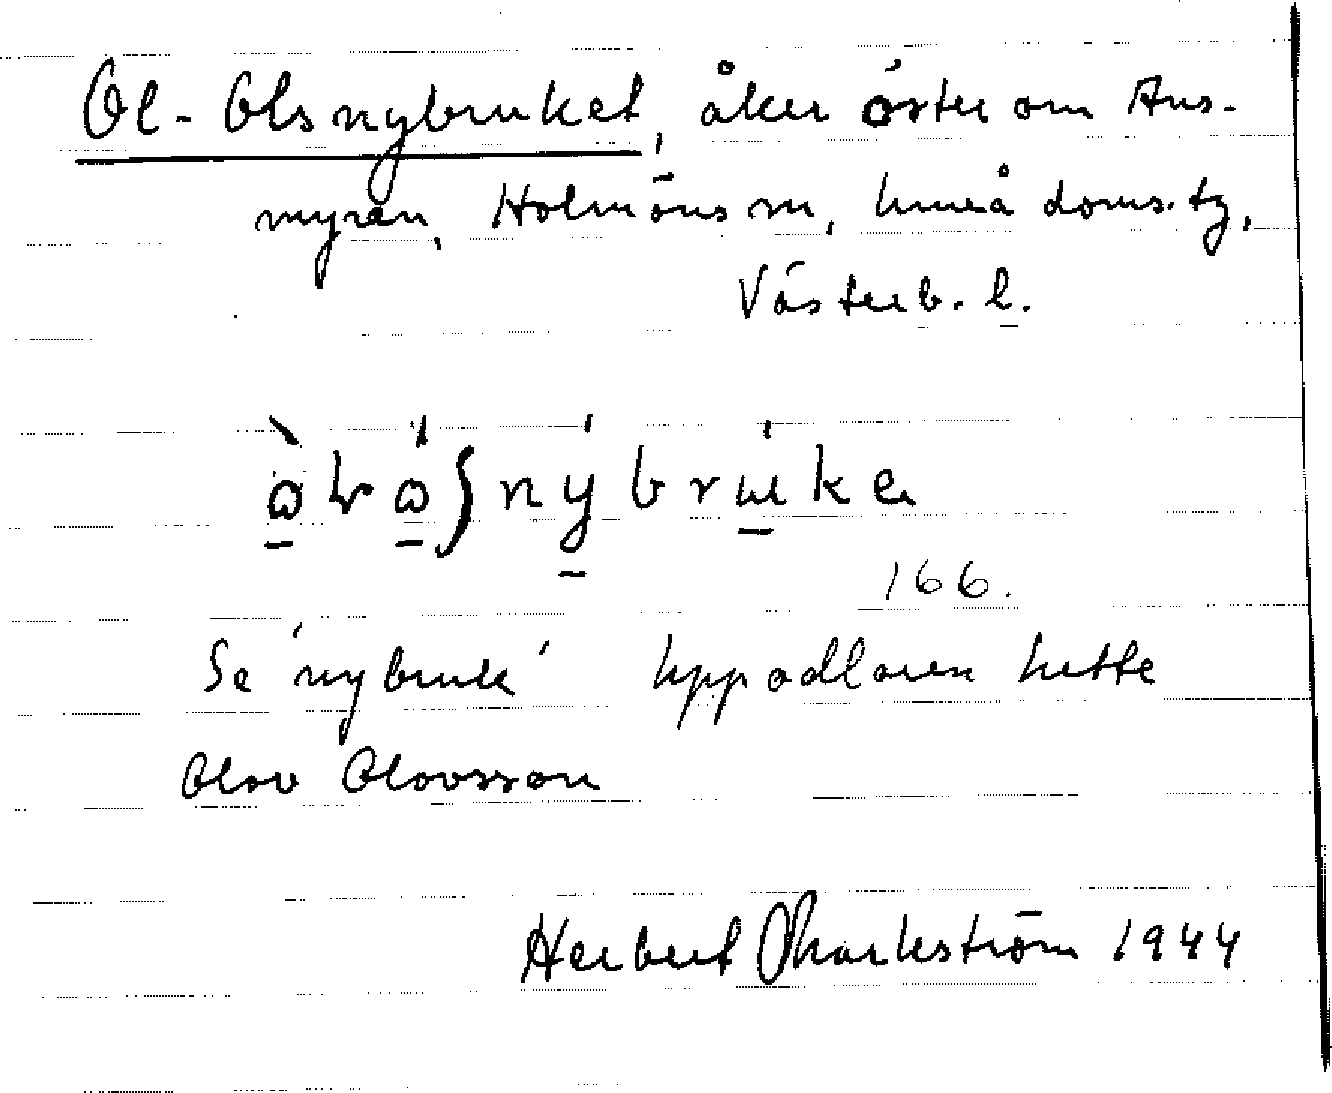 Ol-Olsnybruket, åker öster om Ans-
myran, Holmöns sn, Umeå doms. tg,
Västerb. l.
166.
Se 'nybruk' Uppodlaren hette
Olov Olovsson
Herbert Markström 1944